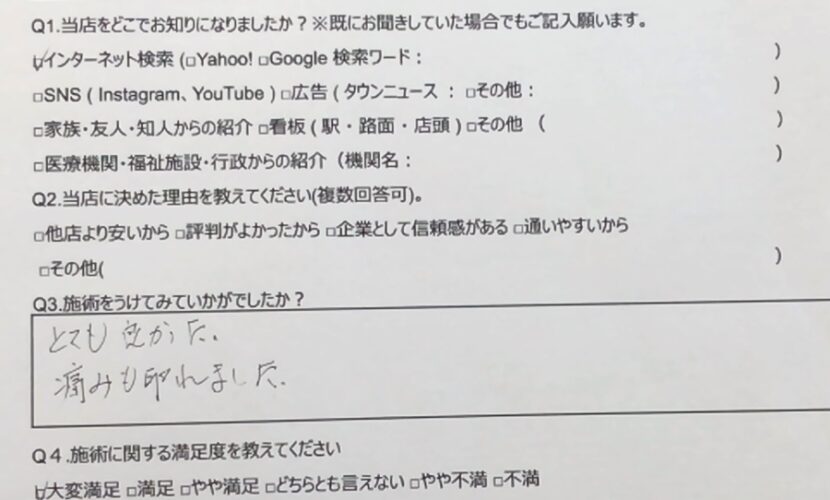 Q1.当店をどこでお知りになりましたか？※既にお聞きしていた場合でもご記入願います。
☑インターネット検索 (□Yahoo! □Google 検索ワード： )
□SNS ( Instagram、YouTube ) □広告 ( タウンニュース ： □その他： )
□家族・友人・知人からの紹介 □看板 ( 駅・路面・店頭 ) □その他 ( )
□医療機関・福祉施設・行政からの紹介（機関名： )
Q2.当店に決めた理由を教えてください(複数回答可)。
□他店より安いから □評判がよかったから □企業として信頼感がある □通いやすいから
□その他( )
Q3.施術をうけてみていかがでしたか？
とても良かった.
痛みも取れました.
Q４.施術に関する満足度を教えてください
☑大変満足 □満足 □やや満足 □どちらとも言えない □やや不満 □不満